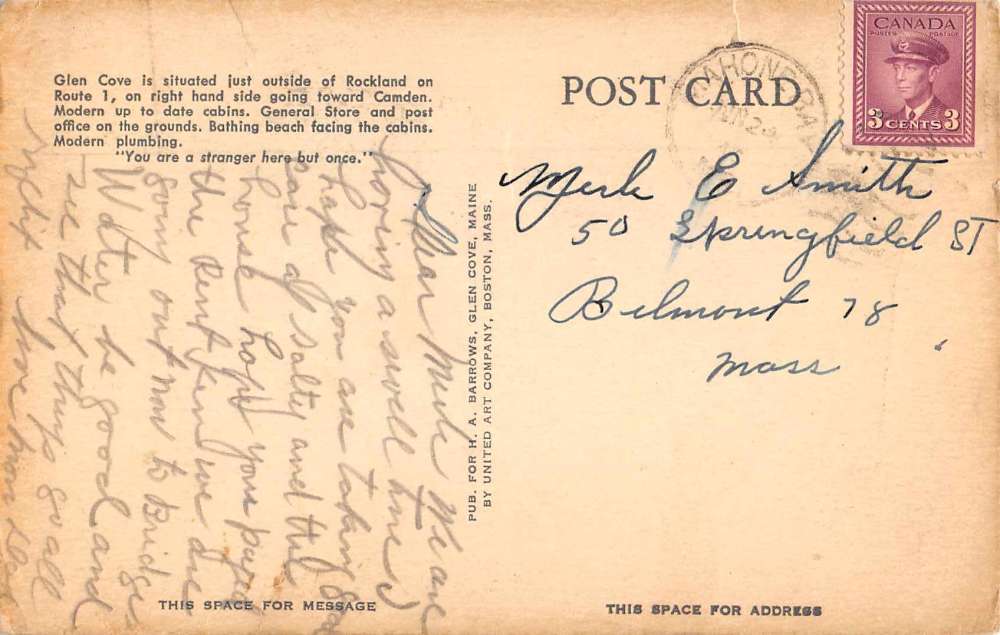 Glen Cove is situated just outside of Rockland on
Route 1, on right hand side going toward Camden.
Modern up to date cabins. General Store and post
office on the grounds. Bathing beach facing the cabins.
Modern plumbing.
"You are a stranger here but once."
POST CARD
CANADA
POSTES POSTAGE
3 CENTS 3
Merle E Smith
50 Springfield ST
Belmont 78
Mass
Dear Merle We are
having a swell time
hope you are taking good
care of salty and the
house hope you payed
the rent Ken we are
going out now to Bridge
Water be good and
see that things go all
right
PUB. FOR H. A. BARROWS, GLEN COVE, MAINE
BY UNITED ART COMPANY, BOSTON, MASS.
THIS SPACE FOR MESSAGE
THIS SPACE FOR ADDRESS